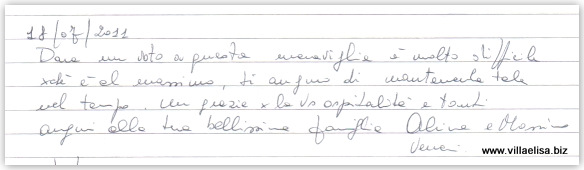 18/07/2011
Dare un voto a questa meraviglia è molto difficile
xchè è al massimo, ti auguro di mantenerla tale
nel tempo. Un grazie x la vs ospitalità e tanti
auguri alla tua bellissima famiglia Alina e Massimo
www.villaelisa.biz